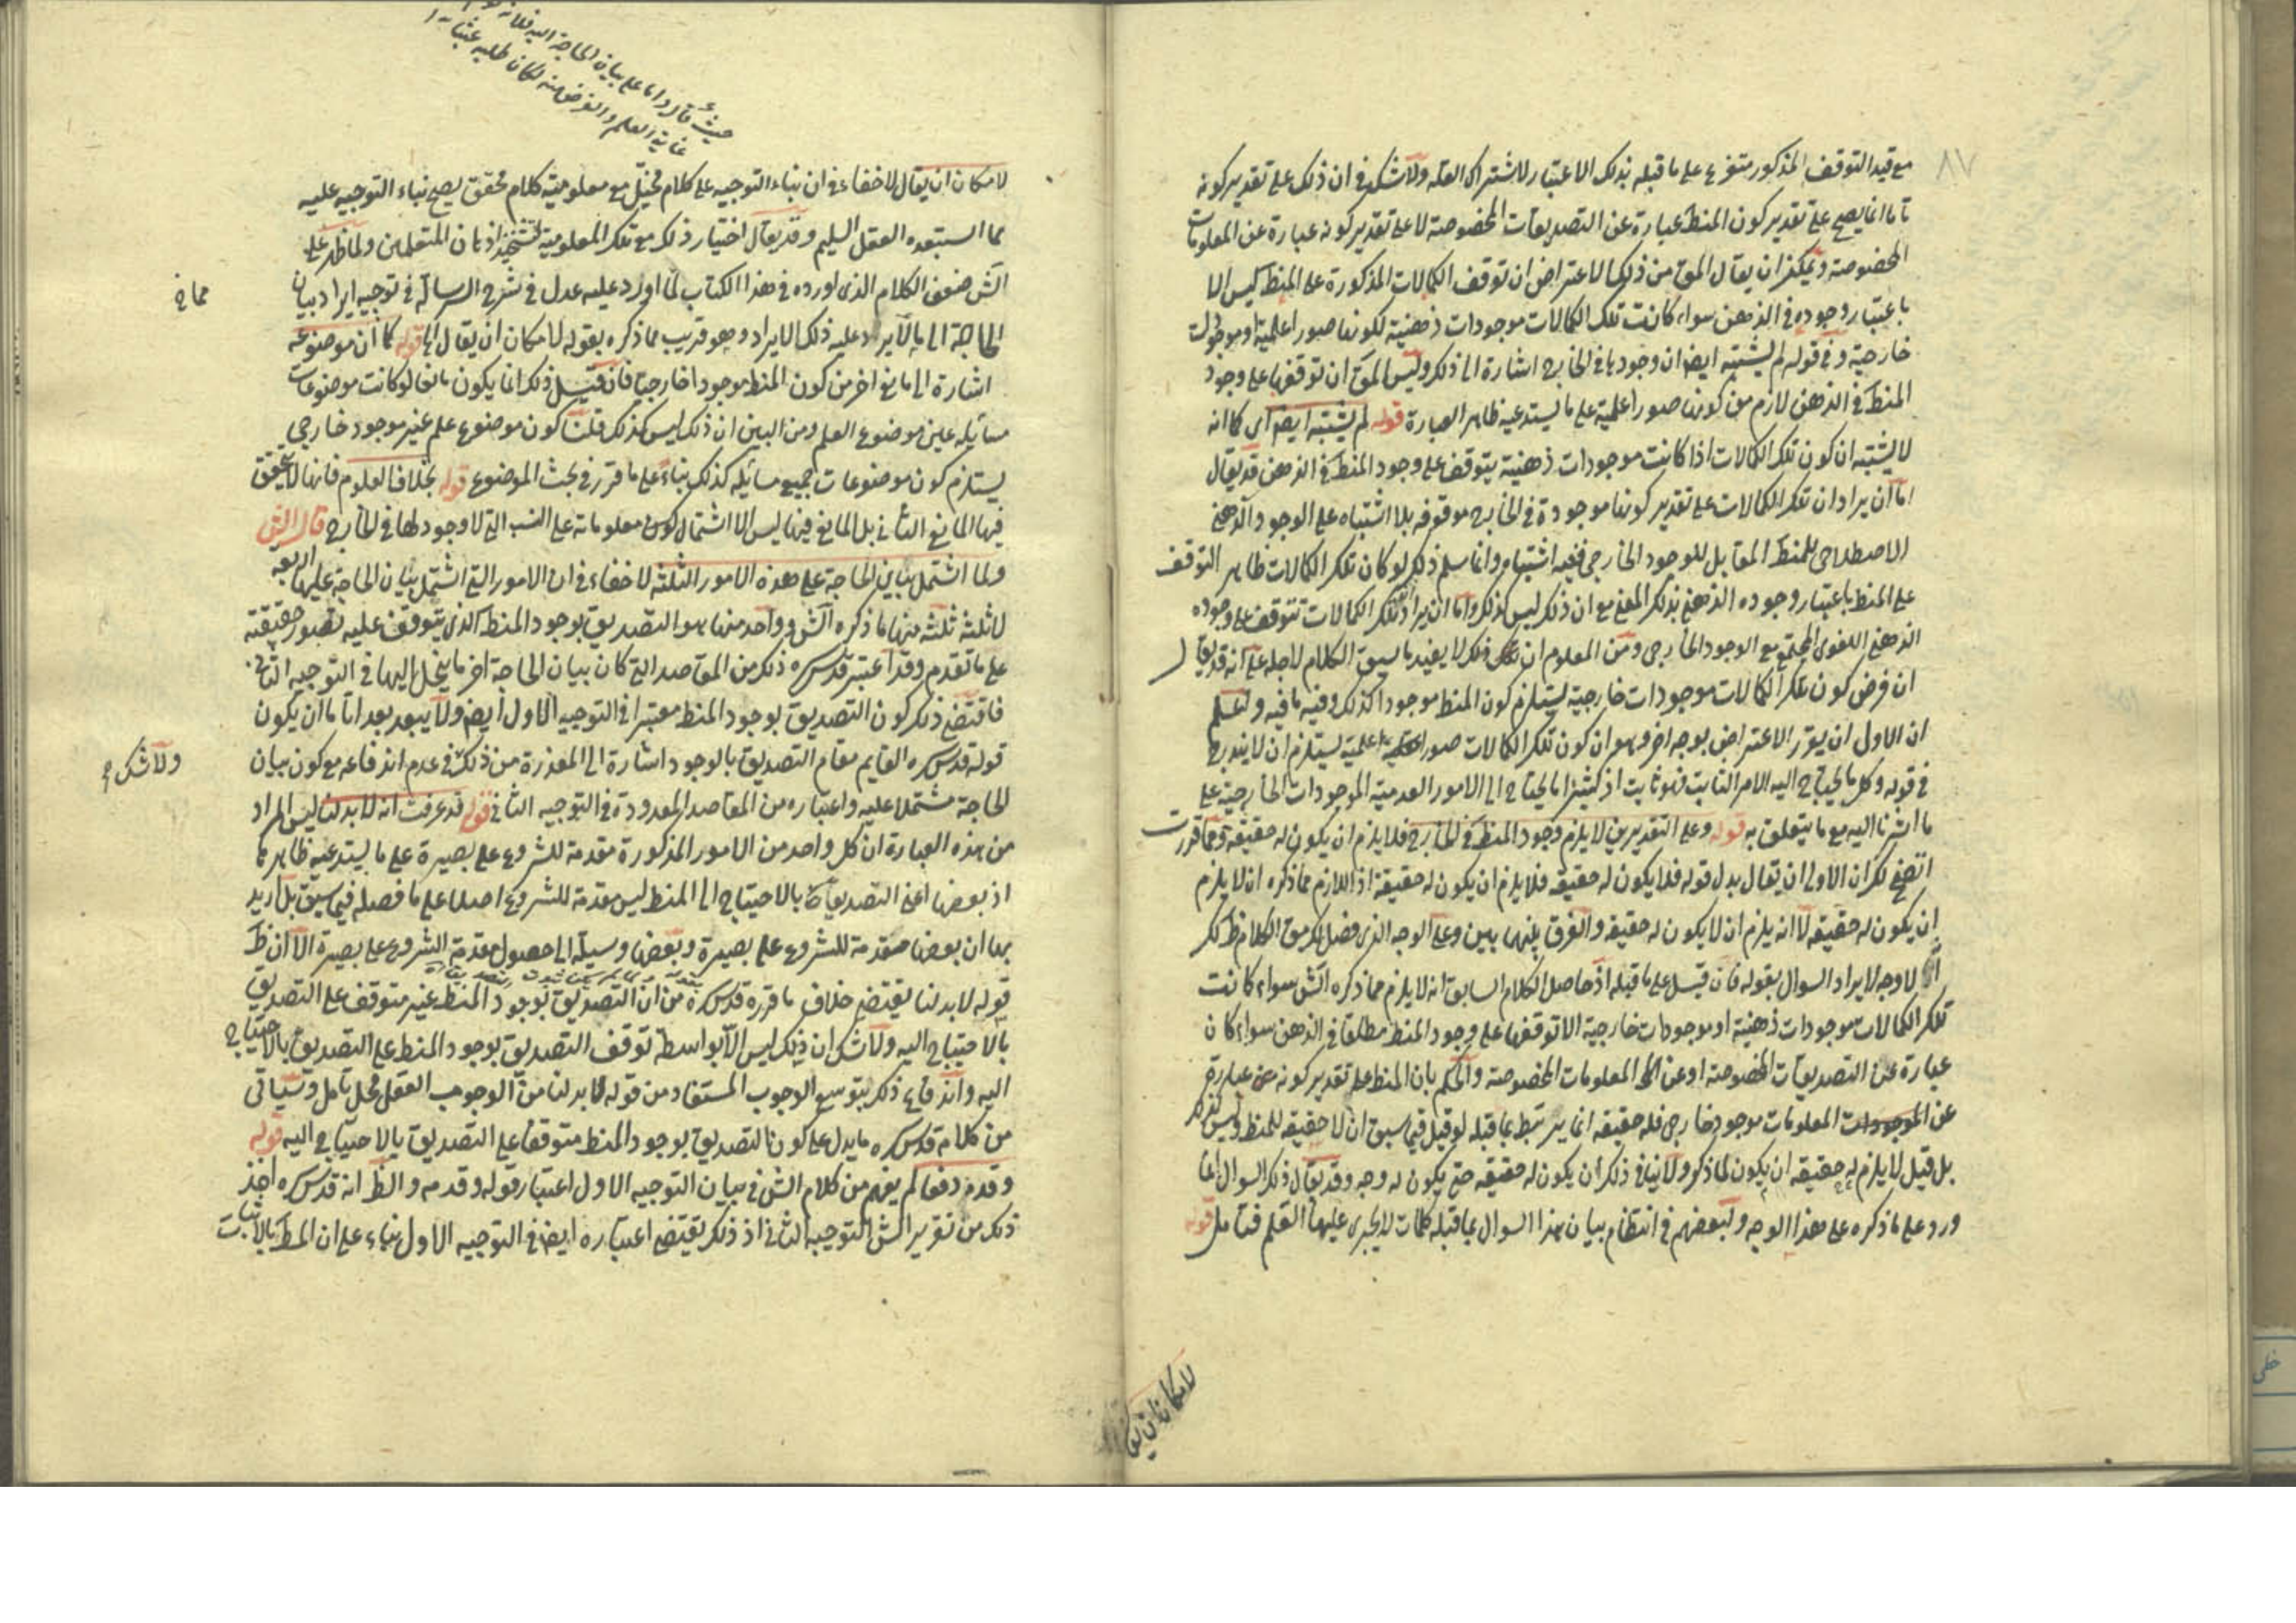 ٨٧
مع قيد التوقف المذكور متفرع على ما قبله بذلك الاعتبار للاشتراك العلة ولا شك في ان ذلك على تقدير كونه
تاما انما يصح على تقدير كون المنط عبارة عن التصديقات المخصوصة لا على تقدير كونه عبارة عن المعلومات
المخصوصة ويمكن ان يقال المق من ذلك الاعتراض ان توقف الكمالات المذكورة على المنط ليس الا
باعتبار وجوده في الذهن سواء كانت تلك الكمالات موجودات ذهنية لكونها صورا علمية او موجودات
خارجية وفي قوله لم يشتبه ايضا ان وجودها في الخارج اشارة الى ذلك وليس المق ان توقفها على وجود
المنط في الذهن لازم من كونها صورا علمية على ما يستدعيه ظاهر العبارة قوله لم يشتبه ايضا اى كما انه
لا يشتبه ان كون تلك الكمالات اذا كانت موجودات ذهنية يتوقف على وجود المنط في الذهن قد يقال
اما ان يراد ان تلك الكمالات على تقدير كونها موجودة في الخارج موقوفه بلا اشتباه على الوجود الذهني
الاصطلاحى للمنط المقابل للوجود الخارجى ففيه اشتباه وانما يسلم ذلك لو كان تلك الكمالات ظاهر التوقف
على المنط باعتبار وجوده الذهني بذلك المعنى مع ان ذلك ليس كذلك واما ان يراد ان تلك الكمالات تتوقف على وجوده
الذهني اللغوى المجتمع مع الوجود الخارجى ومن المعلوم ان ذلك لا يفيد ما سيق الكلام لاجله على انه قد يقال
ان فرض كون تلك الكمالات موجودات خارجية يستلزم كون المنط موجودا كذلك وفيه ما فيه ولتعلم
ان الاول ان يقرر الاعتراض بوجه اخر وهو ان كون تلك الكمالات صورا علمية يستلزم ان لا يندرج
في قوله وكل ما يحتاج اليه الامر الثابت فهو ثابت اذ كثيرا ما يحتاج الى الامور العدمية الموجودات الخارجية على
ما اشرنا اليه مع ما يتعلق به قوله وعلى التقديرين لا يلزم وجود المنط في الخارج فلا يلزم ان يكون له حقيقة ومما قررت
اتضح لك ان الاولى ان يقال بدل قوله فلا يكون له حقيقه فلا يلزم ان يكون له حقيقة اذ اللازم مما ذكره ان لا يلزم
ان يكون له حقيقه لا انه يلزم ان لا يكون له حقيقه والفرق بينهما بين وعلى الوجه الذى فصل لك مق الكلام ظهر لك
لا وجه لايراد السوال بقوله فان قيل على ما قبله اذ حاصل الكلام السابق انه لا يلزم مما ذكره الش سواء كانت
تلك الكمالات موجودات ذهنية او موجودات خارجية الا توقفها على وجود المنط مطلقا في الذهن سواء كان
عبارة عن التصديقات المخصوصة او عن المعلومات المخصوصة والحكم بان المنط على تقدير كونه عبارة
عن المعلومات موجود خارجى فله حقيقه انما يرتبط بما قبله لو قيل فيما سبق ان لا حقيقه للمنط وليس كذلك
بل قيل لا يلزم له حقيقه ان يكون لما ذكر ولا ينافى ذلك ان يكون له حقيقه حتى يكون له وجه وقد يقال ذلك السوال انما
ورد على ما ذكره على هذا الوجه ولبعضهم في انتظام بيان هذا السوال بما قبله كلمات لا يجرى عليها القلم فتامل قوله
لامكان ان يقال
حيث قال واما على بيان الحاجة اليه فلانه
غاية العلم والغرض منه لكان طلبه عبثا
لامكان ان يقال لا خفاء في ان بناء التوجيه على كلام مخيل مع معلومية كلام محقق يصح بناء التوجيه عليه
مما استبعده العقل السليم وقد يقال اختيار ذلك مع تلك المعلومية لتشحيذ اذهان المتعلمين ولما ظهر على
الش ضعف الكلام الذى اورده في هذا الكتاب لما اورد عليه عدل في شرح الرسالة في توجيه ايراد بيان
الحاجة الى ما لا يرد عليه ذلك الايراد وهو قريب مما ذكره بقوله لامكان ان يقال الخ قوله كما ان موضوعه
اشارة الى مانع اخر من كون المنط موجودا خارجيا فان قيل ذلك انما يكون مانعا لو كانت موضوعات
مسائله عين موضوع العلم ومن البين ان ذلك ليس كذلك قلت كون موضوع علم غير موجود خارجى
يستلزم كون موضوعات جميع مسائله كذلك بناء على ما قرر في بحث الموضوع قوله بخلاف العلوم فانها لا يتحقق
فيها المانع الثانى بل المانع فيها ليس الا اشتمال معلوماته على النسب التى لا وجود لها في الخارج قال الش
ولما اشتمل بيان الحاجة على هذه الامور الثلثة لا خفاء في ان الامور التى اشتمل بيان الحاجة عليها اربعه
لا ثلثة ثلثة منها ما ذكره الش وواحد منها هو التصديق بوجود المنط الذى يتوقف عليه تصور حقيقته
على ما تقدم وقد اعتبر قدس سره ذلك من المقاصد التى كان بيان الحاجة اخر ما ينحل اليها في التوجيه الثانى
فاقتضى ذلك كون التصديق بوجود المنط معتبرا في التوجيه الاول ايضا ولا يبعد بعد اتا ما ان يكون
قوله قدس سره القايم مقام التصديق بالوجود اشارة الى المعذرة من ذلك في عدم اندفاعه مع كون بيان
الحاجة مشتملا عليه واعتباره من المقاصد المعدودة في التوجيه الثانى قوله قد عرفت انه لا بد لنا ليس المراد
من هذه العبارة ان كل واحد من الامور المذكورة مقدمة للشروع على بصيرة على ما يستدعيه ظاهرها
اذ بعضها اعنى التصديق بالاحتياج الى المنط ليس مقدمة للشروع اصلا على ما فصله فيما سبق بل اريد
بها ان بعضها مقدمة للشروع على بصيرة وبعضها وسيلة الى حصول مقدمة الشروع على بصيرة الا ان ظ
قوله لا بد لنا يقتضى خلاف ما قرره قدس سره من ان التصديق بوجود المنط غير متوقف على التصديق
بالاحتياج اليه ولا شك ان ذلك ليس الا بواسطة توقف التصديق بوجود المنط على التصديق بالاحتياج
اليه واندفاع ذلك بتوسع الوجوب المستفاد من قوله لا بد لنا من الوجوب العقلى محل تامل وسياتى
من كلام قدس سره ما يدل على كون التصديق بوجود المنط متوقفا على التصديق بالاحتياج اليه قوله
وقدم دفعا لم يفهم من كلام الش في بيان التوجيه الاول اعتبار قوله وقدمه والظ انه قدس سره اخذ
ذلك من تقرير الش التوجيه الثانى اذ ذلك يقتضى اعتباره ايضا في التوجيه الاول بناء على ان المط بالاثبات
ولا شك